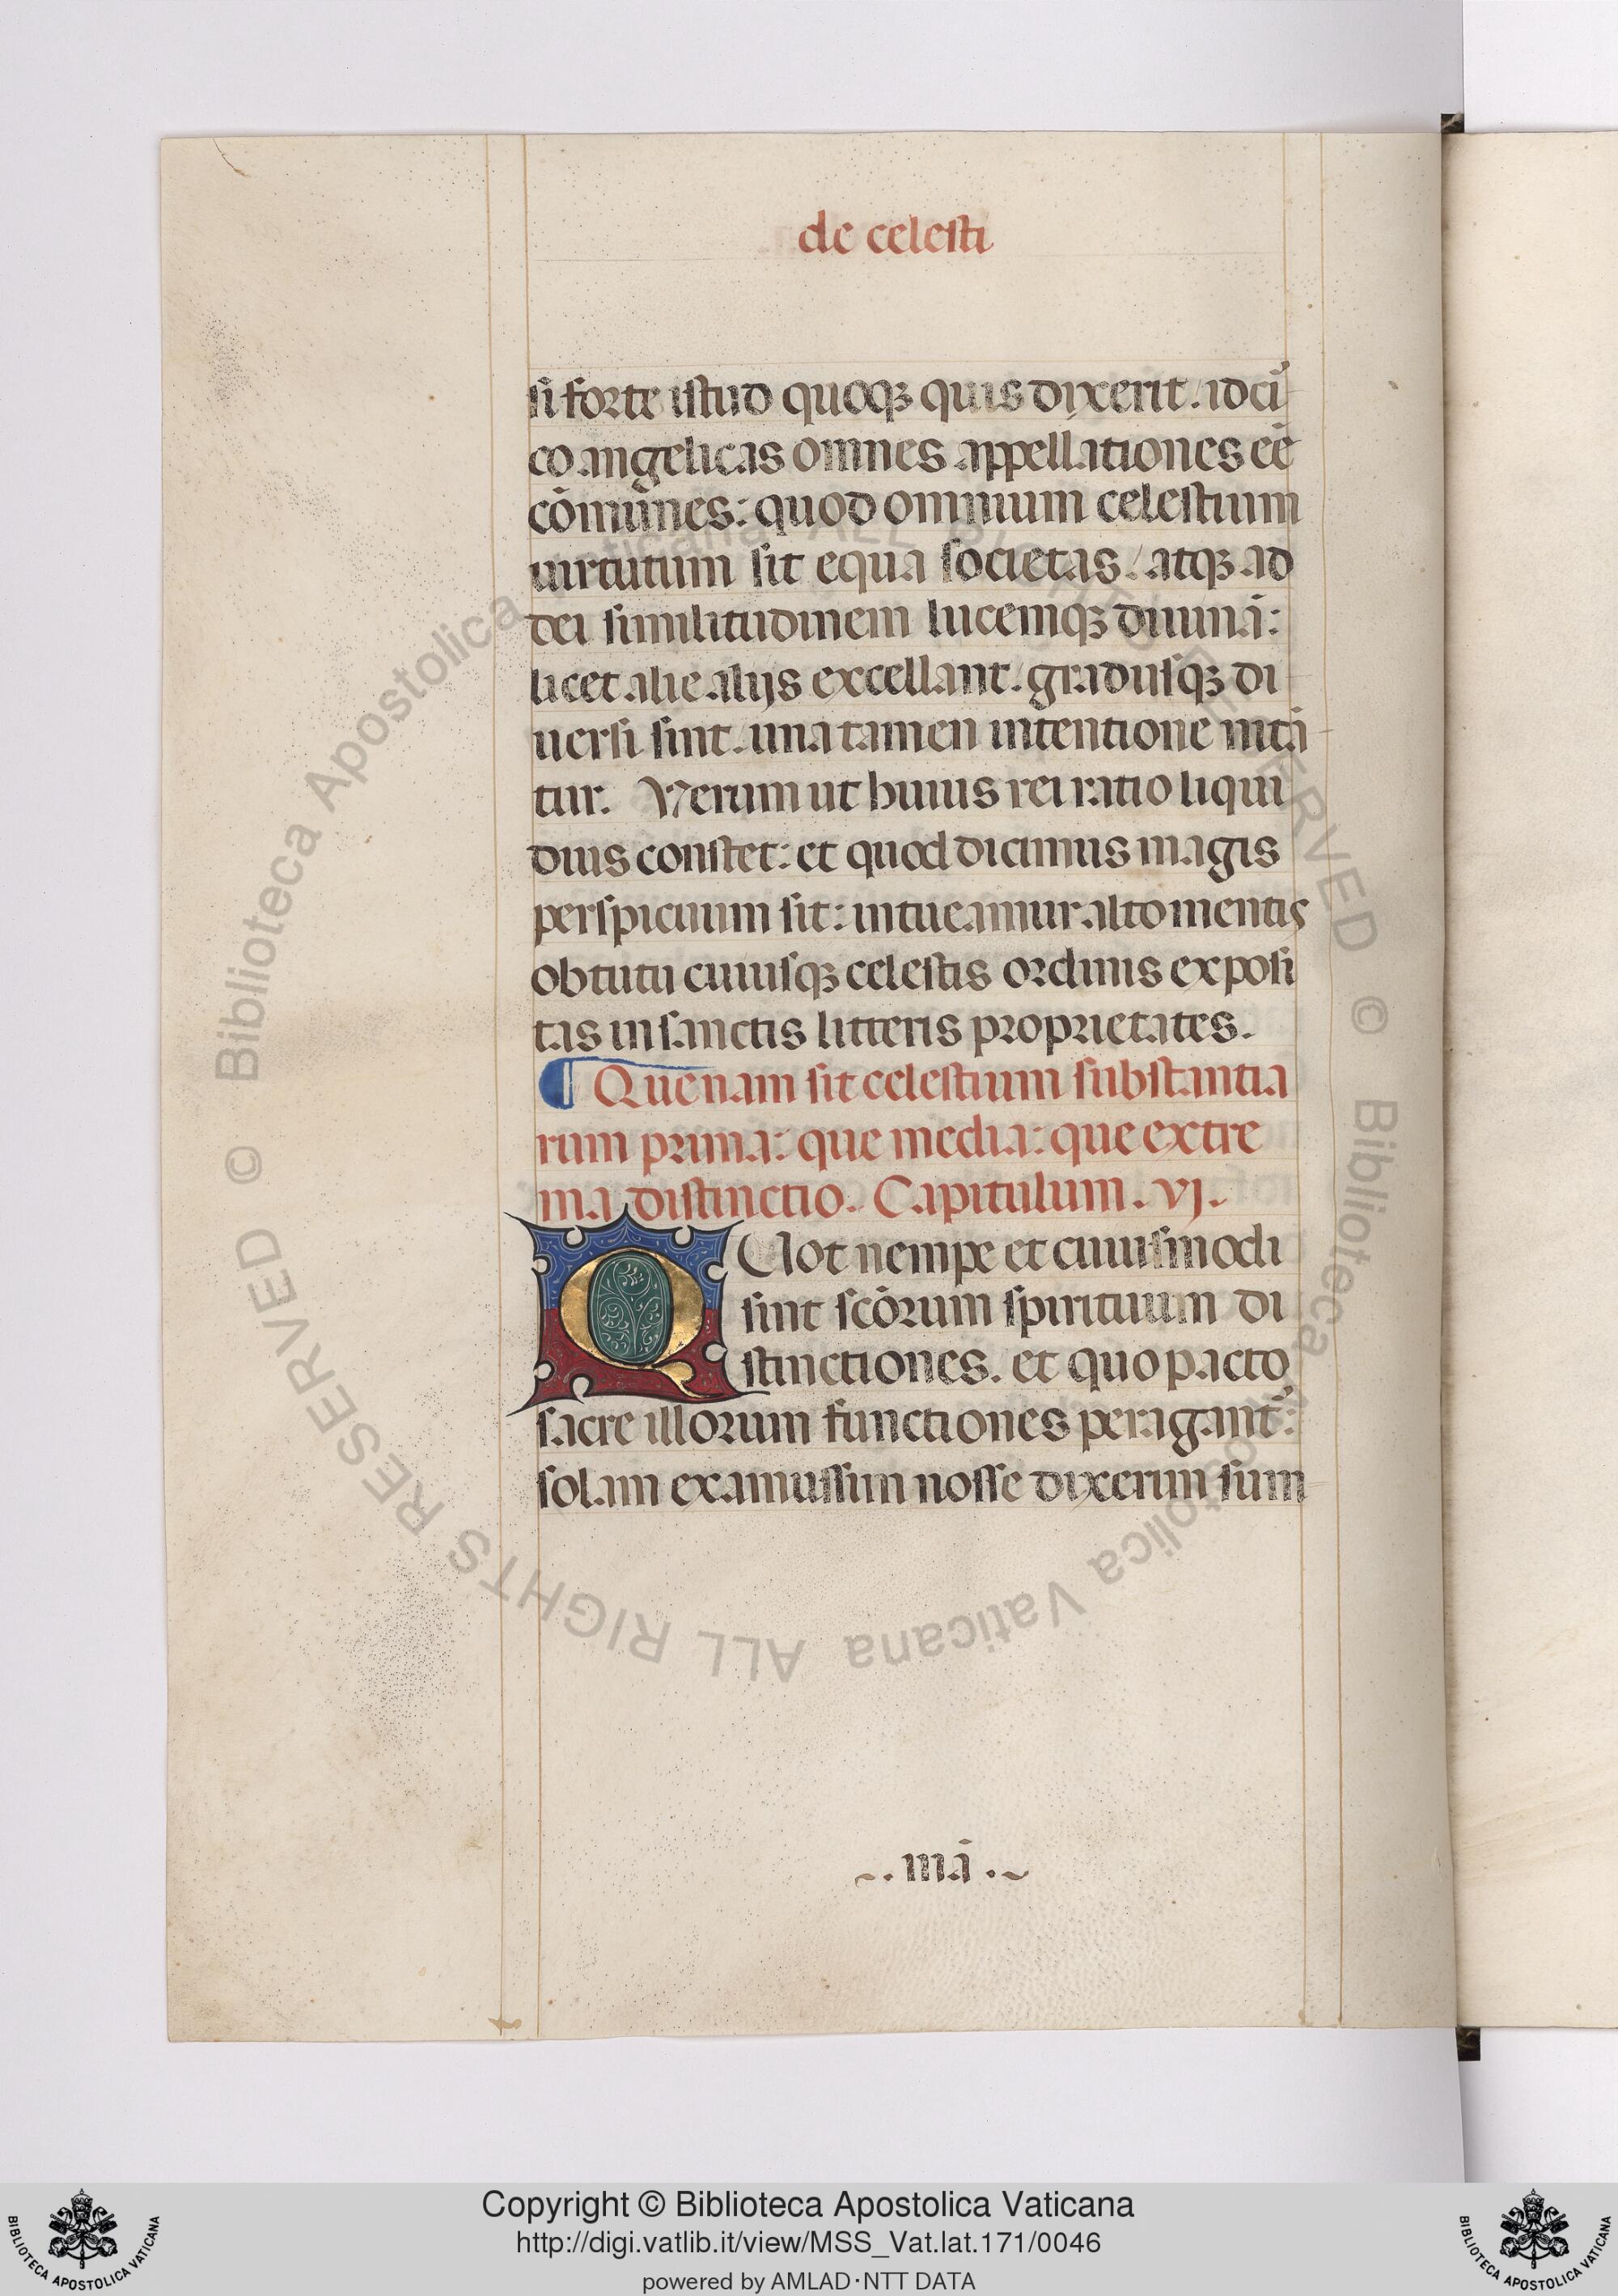 de celesti
si forte istud quoqꝫ quis dixerit. idcı̄
co angelicas omnes appellationes eē
cōmūnes: quod omnium celestium
uirtutum sit equa societas / atqꝫ ad
dei similitudinem lucemqꝫ diuinā:
licet alie alijs excellant. gradusqꝫ di
uersi sint. una tamen intentione nitā
tur. Verum ut huius rei ratio liqui
dius constet: et quod dicimus magis
perspicuum sit: intueamur alto mentis
obtutu cuiusqꝫ celestis ordinis exposi
tas in sanctis litteris proprietates.
¶ Quenam sit celestium substantia
rum prima: que media: que extre
ma distinctio. Capitulum. vj.
QUot nempe et cuiusmodi
sint scōrum spirituum di
stinctiones. et quo pacto
sacre illorum functiones peragant̄:
solam examussim nosse dixerim sum
~. mā .~
© Biblioteca Apostolica Vaticana ALL RIGHTS RESERVED © Biblioteca Apostolica Vaticana ALL RIGHTS RESERVED
Copyright © Biblioteca Apostolica Vaticana
http://digi.vatlib.it/view/MSS_Vat.lat.171/0046
powered by AMLAD·NTT DATA
BIBLIOTECA APOSTOLICA VATICANA
BIBLIOTECA APOSTOLICA VATICANA